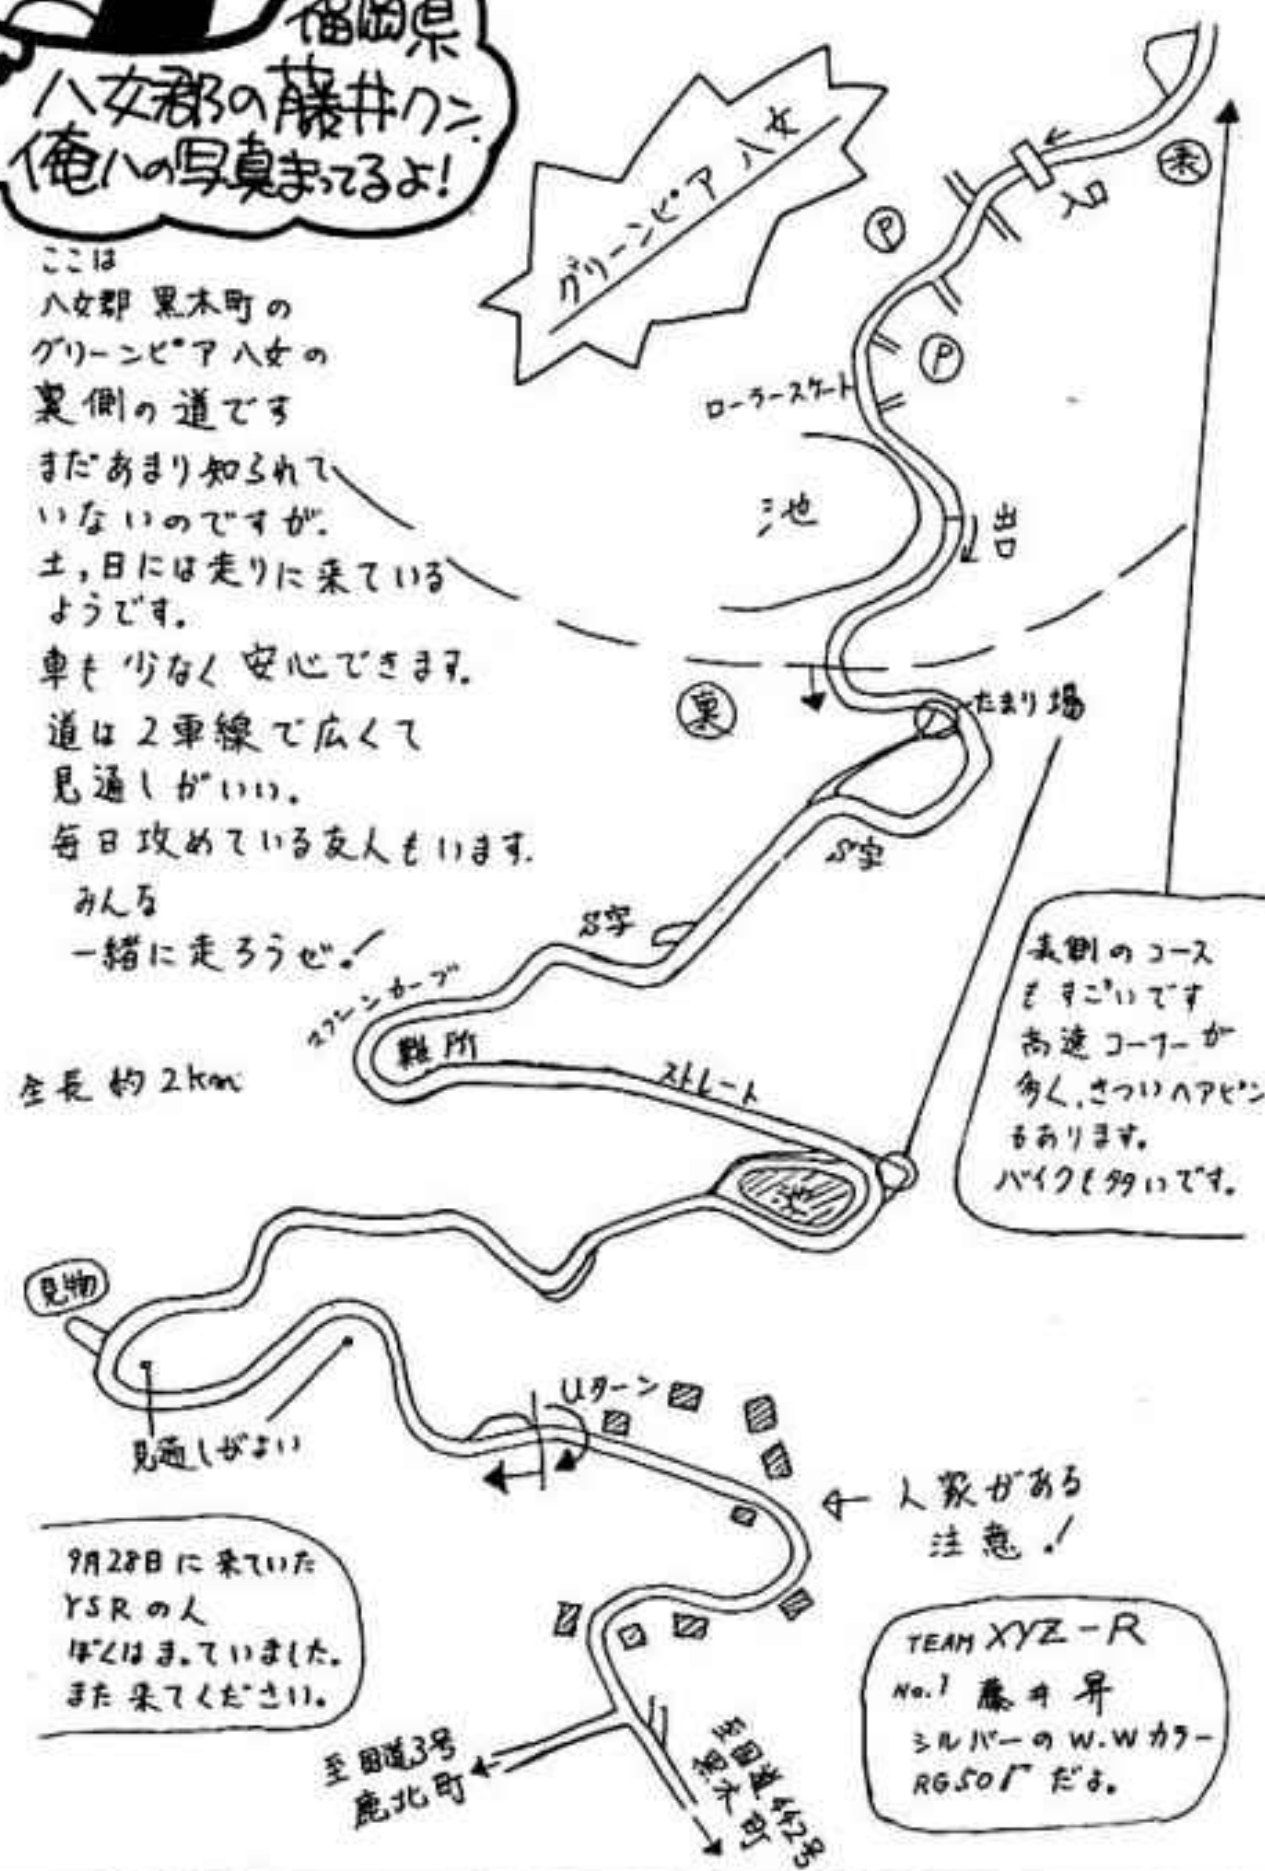 福岡県
八女郡の藤井クン
俺ハの写真まってるよ!
グリーンピア 八女
ここは
八女郡 黒木町の
グリーンピア 八女の
裏側の道です
まだあまり知られて
いないのですが、
土,日には走りに来ている
ようです。
車も少なく安心できます。
道は2車線で広くて
見通しがいい。
毎日攻めている友人もいます。
みんな
一緒に走ろうぜ!
全長 約2km
表
入口
P
P
ローラースケート
池
出口
裏
たまり場
S字
S字
難所
ストレート
池
表側のコース
もすごいです
高速コーナーが
多く、きついヘアピン
もあります。
バイクも多いです。
見物
見通しがよい
Uターン
人家がある
注意!
9月28日に来ていた
YSRの人
ぼくはまっていました。
また来てください。
至国道3号
鹿北町
至国道442号
黒木町
TEAM XYZ-R
No.1 藤井 昇
シルバーのW.Wカラー
RG50Γ だよ。